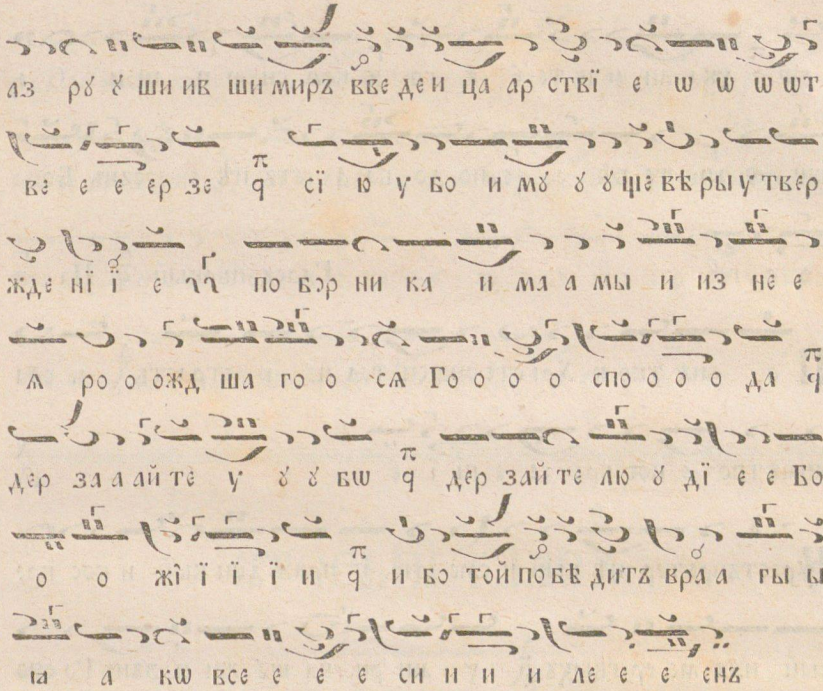 аз рꙋ ꙋ ши ив ши миръ вве де и ца ар ствї е ѡ ѡ ѡ ѡт
ве е е ер зе π q сї ю у бо и мꙋ ꙋ ꙋ ще вѣ ры у твер
жде нї ї е по бор ни ка и ма а мы и из не е
ѧ ро о ожд ша го о сѧ Го о о о спо о о о да π q
дер за а ай те у ꙋ ꙋ бѡ π q дер зай те лю ꙋ дї е е Бо
о о жї ї ї ї ї и π q и бо той по бѣ дитъ вра а гы ы
ꙗ а кѡ все е е е си и и и ле е е енъ